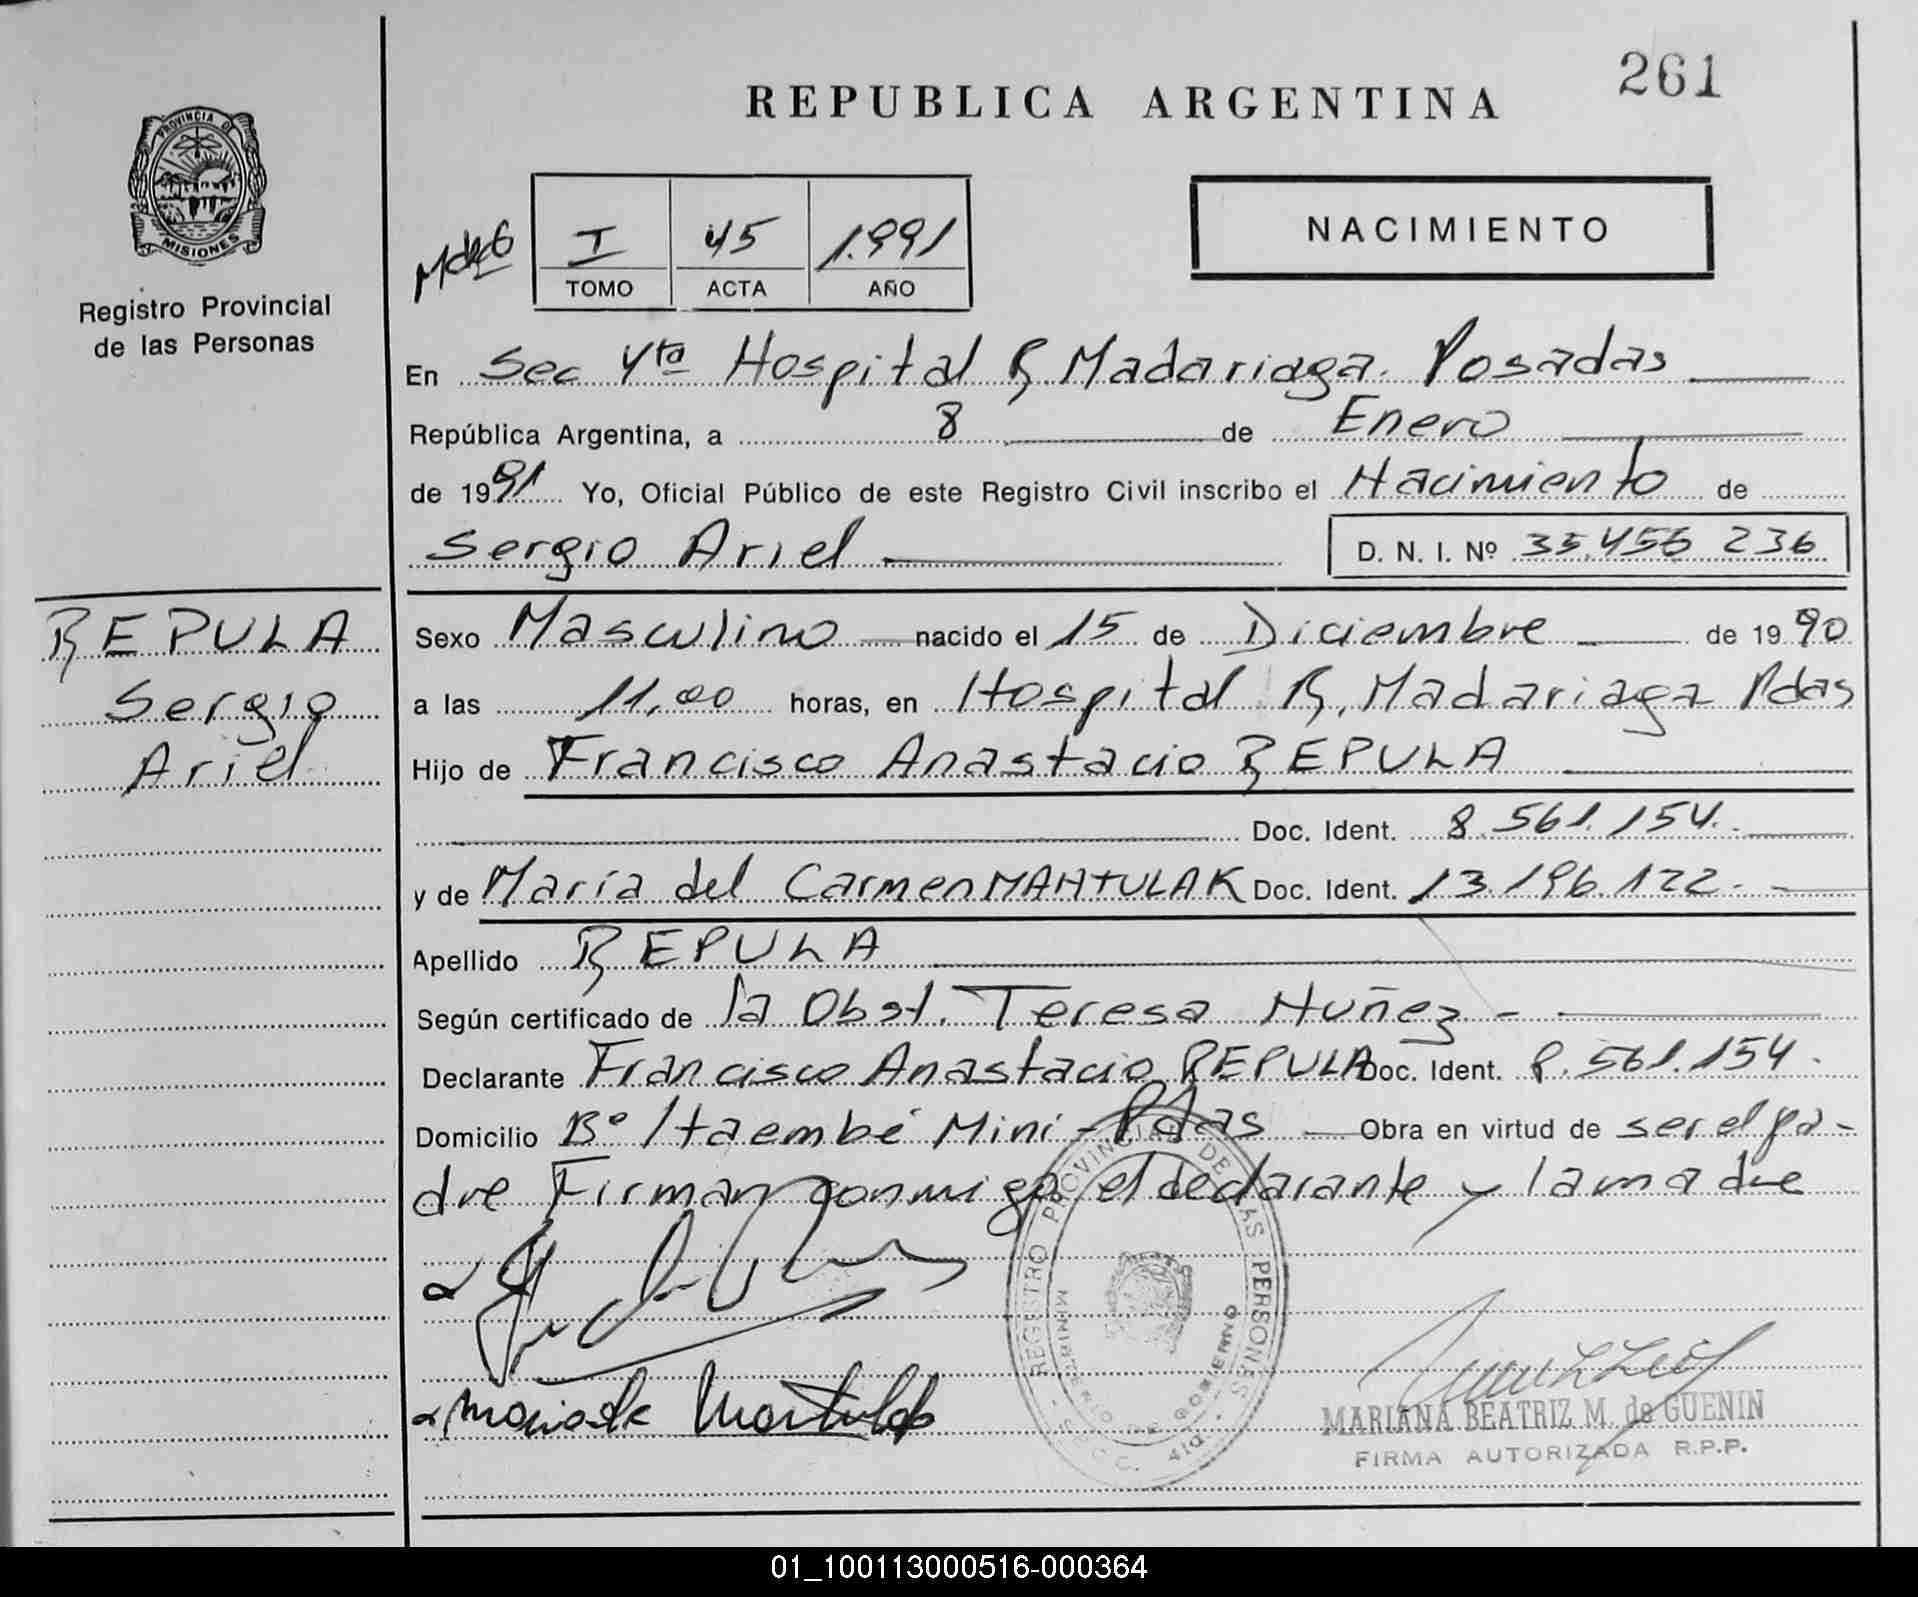 261
REPUBLICA ARGENTINA
PROVINCIA DE
MISIONES
Registro Provincial
de las Personas
I 45 1.991
TOMO ACTA AÑO
NACIMIENTO
En Sec 4ta Hospital R. Madariaga. Posadas
República Argentina, a 8 de Enero
de 1991 Yo, Oficial Público de este Registro Civil inscribo el Nacimiento de
Sergio Ariel D. N. I. Nº 35.456 236
REPULA
Sergio
Ariel
Sexo Masculino nacido el 15 de Diciembre de 1990
a las 11,00 horas, en Hospital R. Madariaga Pdas
Hijo de Francisco Anastacio REPULA
Doc. Ident. 8.561.154.
y de María del Carmen MANTULAK Doc. Ident. 13.196.122.-
Apellido REPULA
Según certificado de la Obst. Teresa Nuñez -
Declarante Francisco Anastacio REPULA Doc. Ident. 8.561.154.
Domicilio Bº Itaembé Mini - Pdas Obra en virtud de ser el pa-
dre Firman conmigo el declarante y la madre
REGISTRO PROVINCIAL DE LAS PERSONAS
MINISTERIO DE GOBIERNO
- SECC. 4ta -
MARIANA BEATRIZ M. de GUENIN
FIRMA AUTORIZADA R.P.P.
01_100113000516-000364